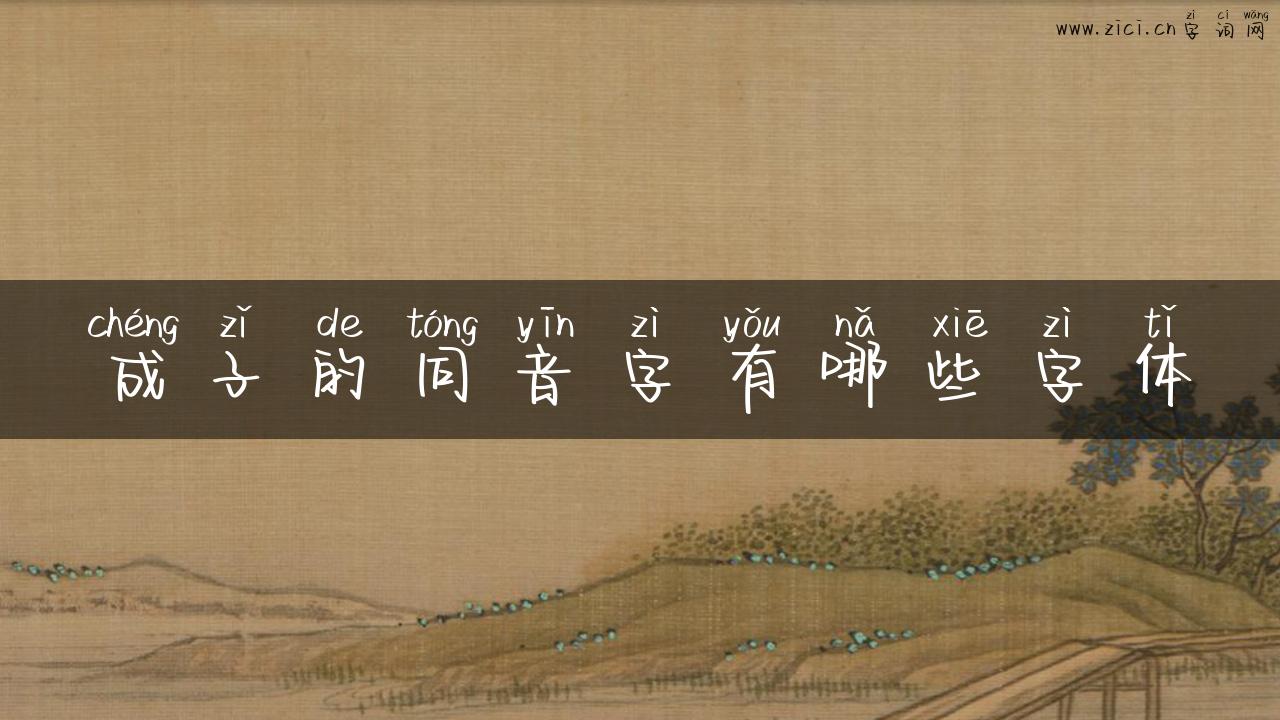 zì cí wǎng
www.zici.cn字词网
chéng zǐ de tóng yīn zì yǒu nǎ xiē zì tǐ
成子的同音字有哪些字体